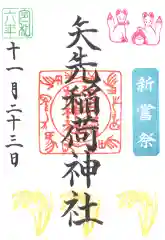 新嘗祭
矢先稲荷神社
六年
十一月二十三日